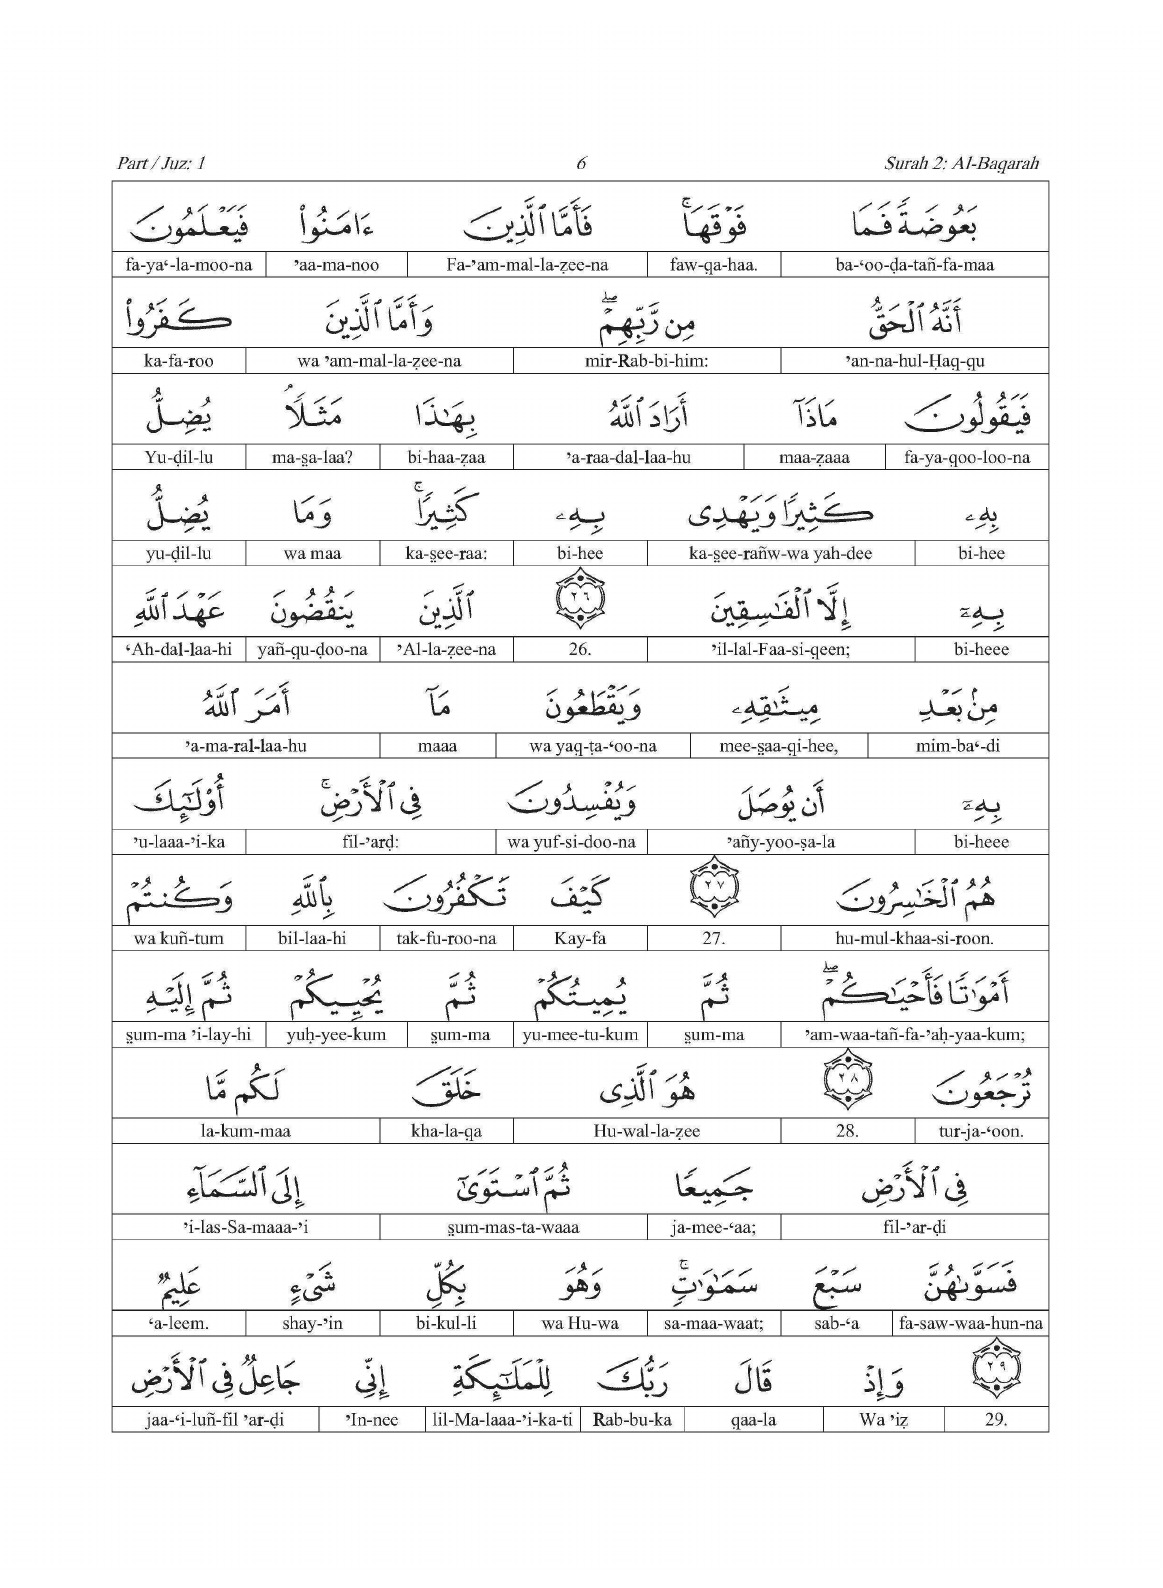 Part / Juz: 1 6 Surah 2: Al-Baqarah
بَعُوضَةً فَمَا فَوْقَهَا ۚ فَأَمَّا ٱلَّذِينَ ءَامَنُوا۟ فَيَعْلَمُونَ
ba-‘oo-ḍa-tañ-fa-maa faw-qa-haa. Fa-’am-mal-la-ẓee-na ’aa-ma-noo fa-ya‘-la-moo-na
أَنَّهُ ٱلْحَقُّ مِن رَّبِّهِمْ ۖ وَأَمَّا ٱلَّذِينَ كَفَرُوا۟
’an-na-hul-Ḥaq-qu mir-Rab-bi-him: wa ’am-mal-la-ẓee-na ka-fa-roo
فَيَقُولُونَ مَاذَآ أَرَادَ ٱللَّهُ بِهَـٰذَا مَثَلًا ۘ يُضِلُّ
fa-ya-qoo-loo-na maa-ẓaaa ’a-raa-dal-laa-hu bi-haa-ẓaa ma-s̱a-laa? Yu-ḍil-lu
بِهِۦ كَثِيرًا وَيَهْدِى بِهِۦ كَثِيرًا ۚ وَمَا يُضِلُّ
bi-hee ka-s̱ee-rañw-wa yah-dee bi-hee ka-s̱ee-raa: wa maa yu-ḍil-lu
بِهِۦٓ إِلَّا ٱلْفَـٰسِقِينَ ٢٦ ٱلَّذِينَ يَنقُضُونَ عَهْدَ ٱللَّهِ
bi-heee ’il-lal-Faa-si-qeen; 26. ’Al-la-ẓee-na yañ-qu-ḍoo-na ‘Ah-dal-laa-hi
مِنۢ بَعْدِ مِيثَـٰقِهِۦ وَيَقْطَعُونَ مَآ أَمَرَ ٱللَّهُ
mim-ba‘-di mee-s̱aa-qi-hee, wa yaq-ṭa-‘oo-na maaa ’a-ma-ral-laa-hu
بِهِۦٓ أَن يُوصَلَ وَيُفْسِدُونَ فِى ٱلْأَرْضِ ۚ أُو۟لَـٰٓئِكَ
bi-heee ’añy-yoo-ṣa-la wa yuf-si-doo-na fil-’arḍ: ’u-laaa-’i-ka
هُمُ ٱلْخَـٰسِرُونَ ٢٧ كَيْفَ تَكْفُرُونَ بِٱللَّهِ وَكُنتُمْ
hu-mul-khaa-si-roon. 27. Kay-fa tak-fu-roo-na bil-laa-hi wa kuñ-tum
أَمْوَٰتًا فَأَحْيَـٰكُمْ ۖ ثُمَّ يُمِيتُكُمْ ثُمَّ يُحْيِيكُمْ ثُمَّ إِلَيْهِ
’am-waa-tañ-fa-’aḥ-yaa-kum; s̱um-ma yu-mee-tu-kum s̱um-ma yuḥ-yee-kum s̱um-ma ’i-lay-hi
تُرْجَعُونَ ٢٨ هُوَ ٱلَّذِى خَلَقَ لَكُم مَّا
tur-ja-‘oon. 28. Hu-wal-la-ẓee kha-la-qa la-kum-maa
فِى ٱلْأَرْضِ جَمِيعًا ثُمَّ ٱسْتَوَىٰٓ إِلَى ٱلسَّمَآءِ
fil-’ar-ḍi ja-mee-‘aa; s̱um-mas-ta-waaa ’i-las-Sa-maaa-’i
فَسَوَّىٰهُنَّ سَبْعَ سَمَـٰوَٰتٍ ۚ وَهُوَ بِكُلِّ شَىْءٍ عَلِيمٌ
fa-saw-waa-hun-na sab-‘a sa-maa-waat; wa Hu-wa bi-kul-li shay-’in ‘a-leem.
٢٩ وَإِذْ قَالَ رَبُّكَ لِلْمَلَـٰٓئِكَةِ إِنِّى جَاعِلٌ فِى ٱلْأَرْضِ
29. Wa ’iẓ qaa-la Rab-bu-ka lil-Ma-laaa-’i-ka-ti ’In-nee jaa-‘i-luñ-fil ’ar-ḍi